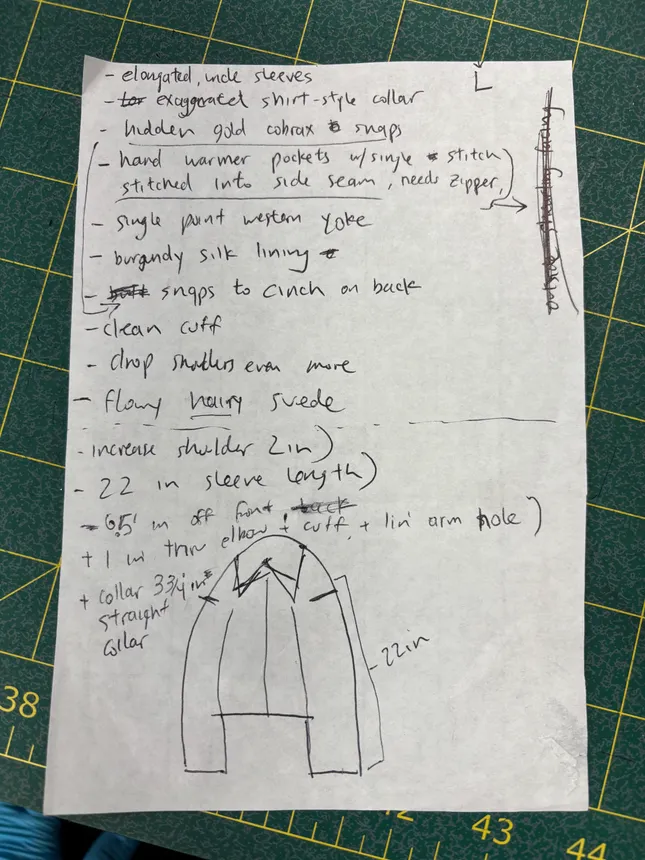 L
- elongated, wide sleeves
- exaggerated shirt-style collar
- hidden gold cobrax snaps
- hand warmer pockets w/single stitch
stitched into side seam, needs zipper,
- single point western yoke
- burgundy silk lining
- snaps to cinch on back
- clean cuff
- drop shoulders even more
- flowy hairy suede
- increase shoulder 2in)
- 22 in sleeve length)
- in off front elbow + cuff, + 1in arm hole)
+ 1 in thru
+ collar 3 3/4 in
straight
collar
- 22in
38
42
43
44